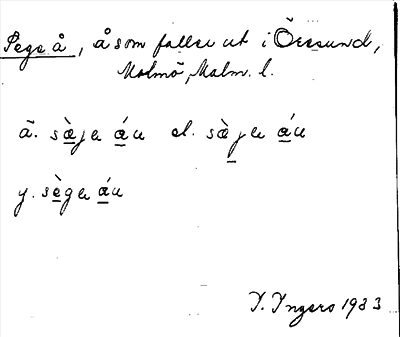 Sege å, å som faller ut i Öresund,
Malmö, Malm. l.
ä. sæ̀je áu el. sæ̀je áu
y. sège áu
I. Ingers 1933